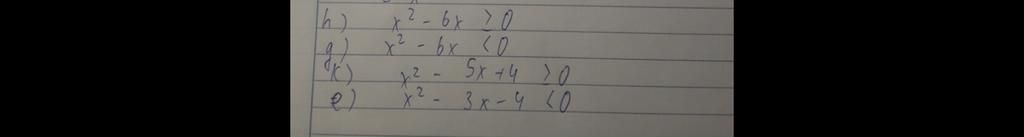 h) x² - 6x ≥ 0
g) x² - 6x < 0
k) x² - 5x + 4 ≥ 0
e) x² - 3x - 4 < 0